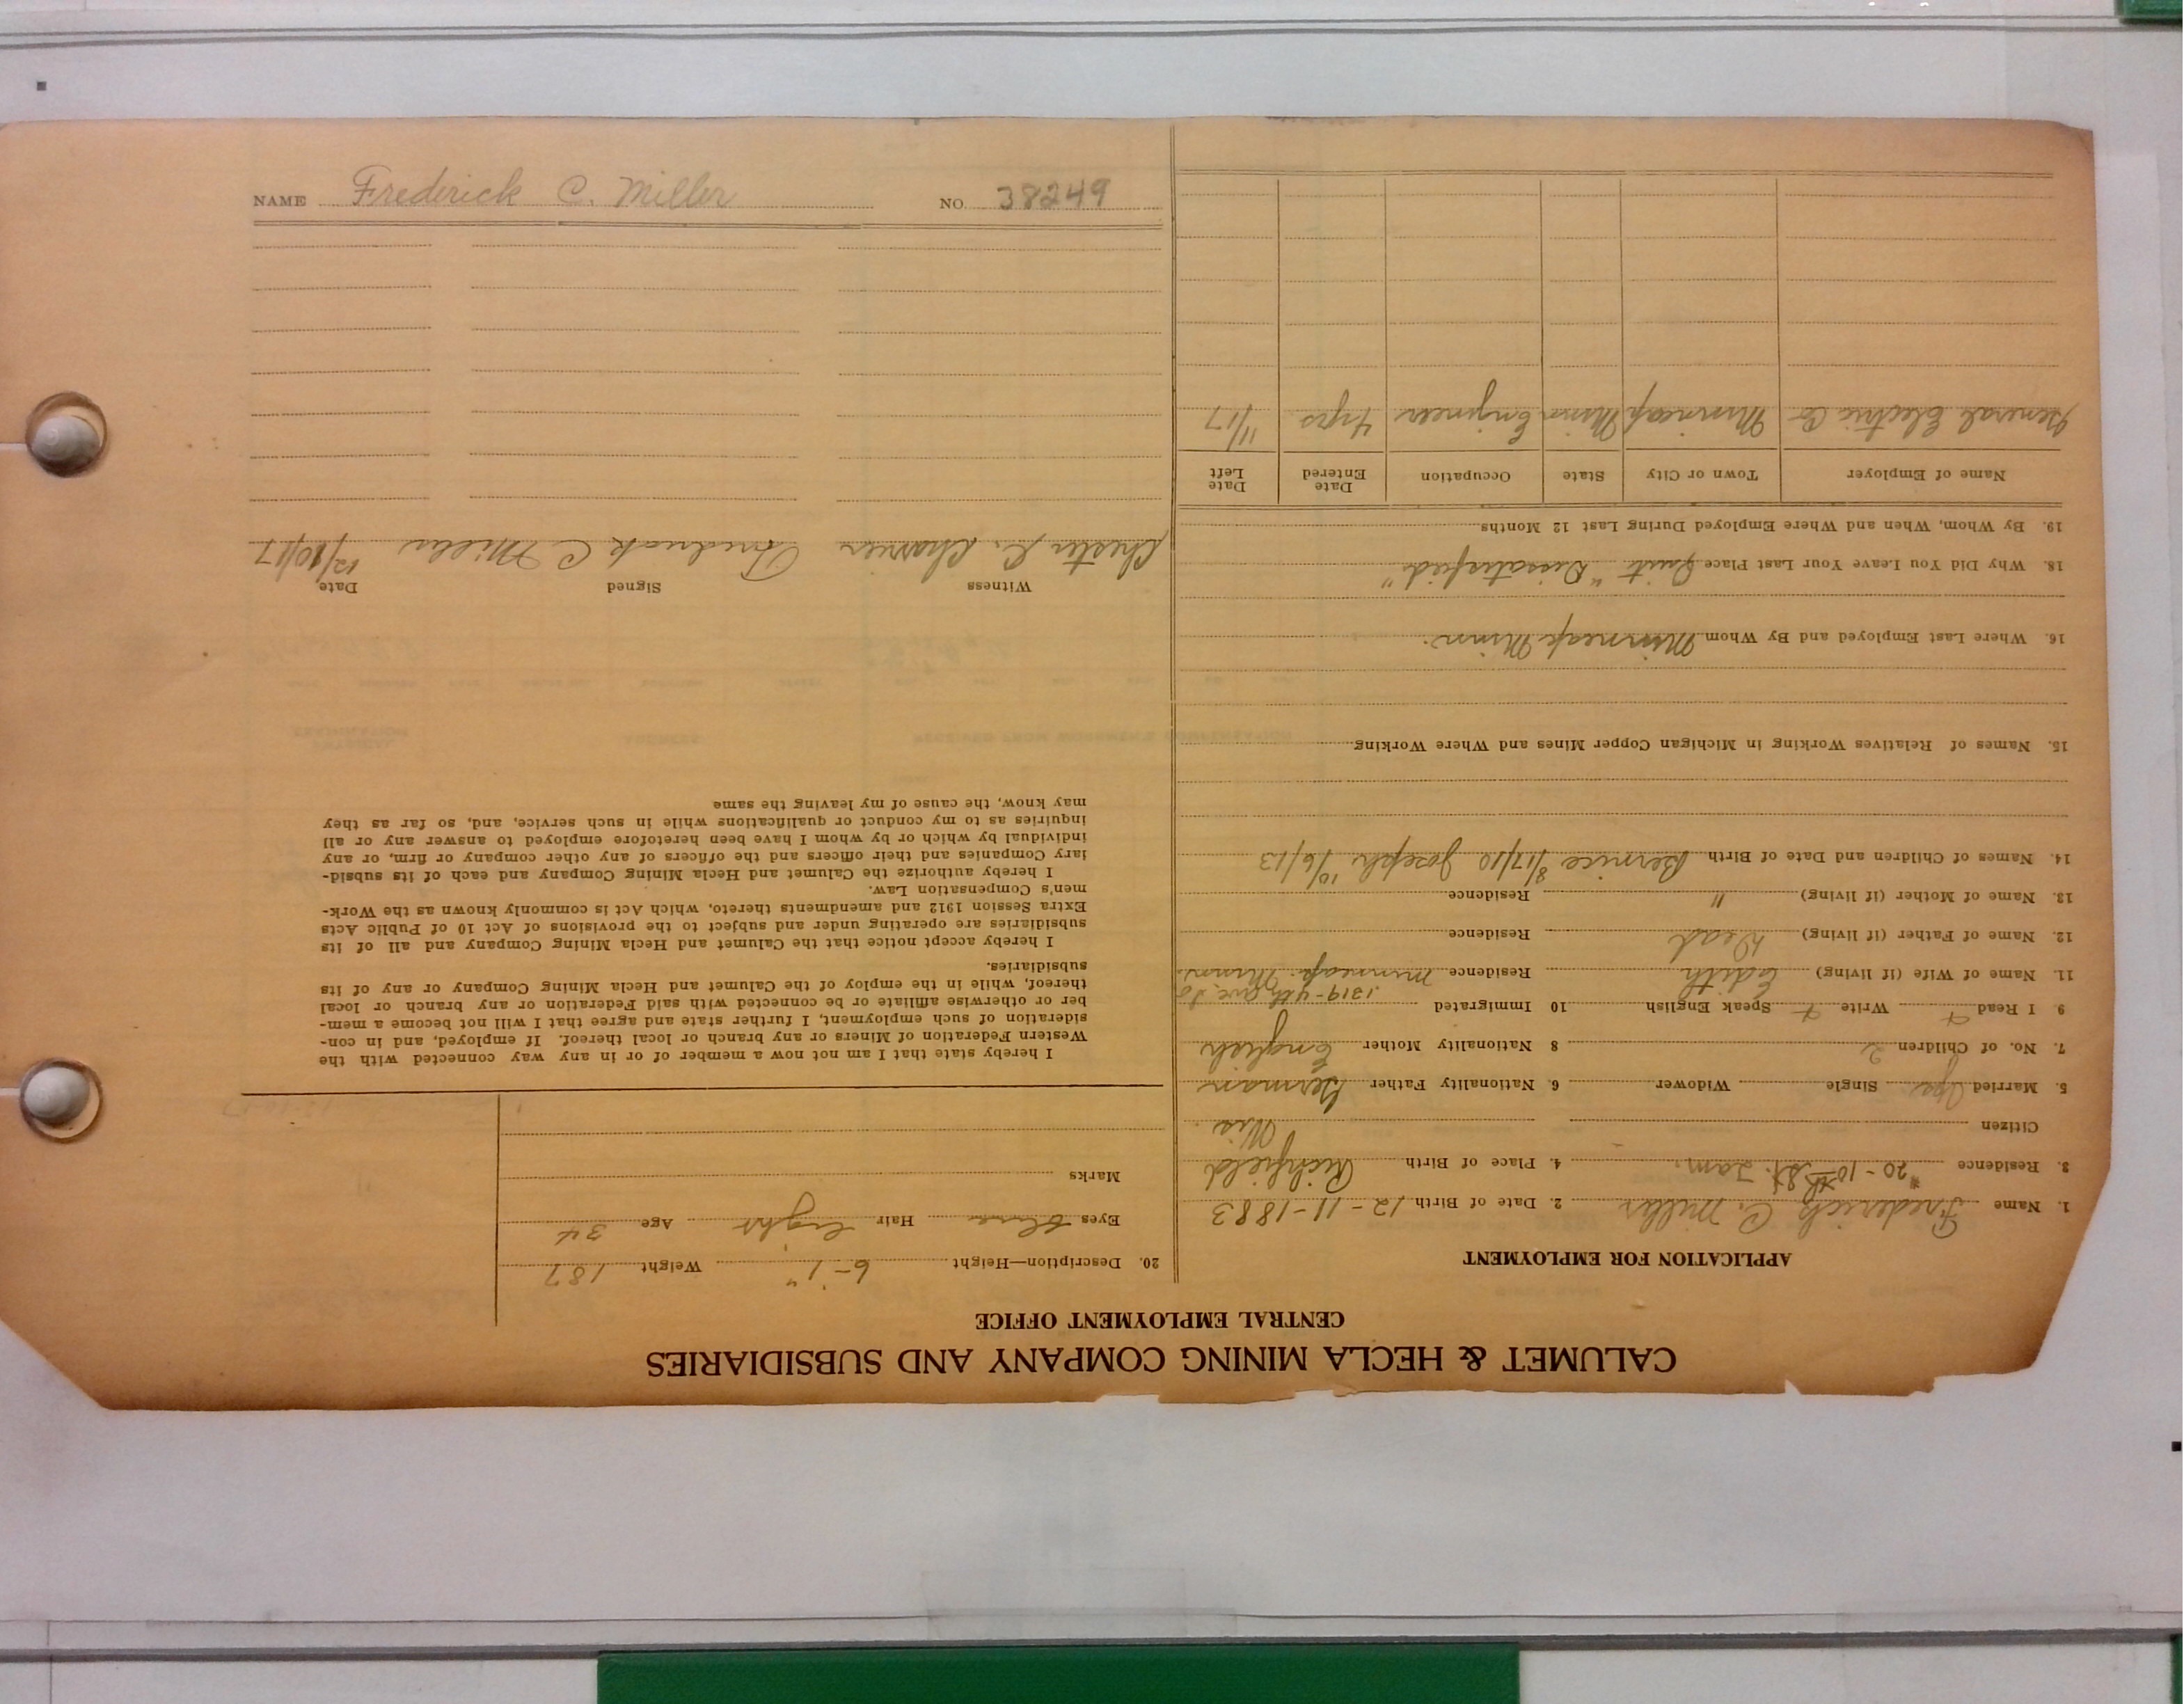 CALUMET & HECLA MINING COMPANY AND SUBSIDIARIES
CENTRAL EMPLOYMENT OFFICE
APPLICATION FOR EMPLOYMENT
1. Name Frederick C. Miller 2. Date of Birth 12-11-1883
3. Residence #20-10th St. Lam. 4. Place of Birth Richfield
Citizen Wis.
5. Married Yes Single Widower 6. Nationality Father German
7. No. of Children 2 8 Nationality Mother English
9. I Read Write Speak English 10 Immigrated
1319-4th Ave. So
11. Name of Wife (if living) Edith Residence Minneap. Minn.
12. Name of Father (if living) Dead Residence
13. Name of Mother (if living) " Residence
14. Names of Children and Date of Birth Bernice 8/17/10 Joseph 10/6/13
15. Names of Relatives Working in Michigan Copper Mines and Where Working
16. Where Last Employed and By Whom Minneap Minn.
18. Why Did You Leave Your Last Place Quit "Dissatisfied"
19. By Whom, When and Where Employed During Last 12 Months
Name of Employer Town or City State Occupation Date Entered Date Left
General Electric Co Minneap Minn Engineer 4 yrs 11/17
20. Description—Height 6-1" Weight 187
Eyes blue Hair light Age 34
Marks
I hereby state that I am not now a member of or in any way connected with the
Western Federation of Miners or any branch or local thereof. If employed, and in con-
sideration of such employment, I further state and agree that I will not become a mem-
ber or otherwise affiliate or be connected with said Federation or any branch or local
thereof, while in the employ of the Calumet and Hecla Mining Company or any of its
subsidiaries.
I hereby accept notice that the Calumet and Hecla Mining Company and all of its
subsidiaries are operating under and subject to the provisions of Act 10 of Public Acts
Extra Session 1912 and amendments thereto, which Act is commonly known as the Work-
men's Compensation Law.
I hereby authorize the Calumet and Hecla Mining Company and each of its subsid-
iary Companies and their officers and the officers of any other company or firm, or any
individual by which or by whom I have been heretofore employed to answer any or all
inquiries as to my conduct or qualifications while in such service, and, so far as they
may know, the cause of my leaving the same
Witness Signed Date
Chester C. Frederick C Miller 12/10/17
NAME Frederick C. Miller NO. 38249